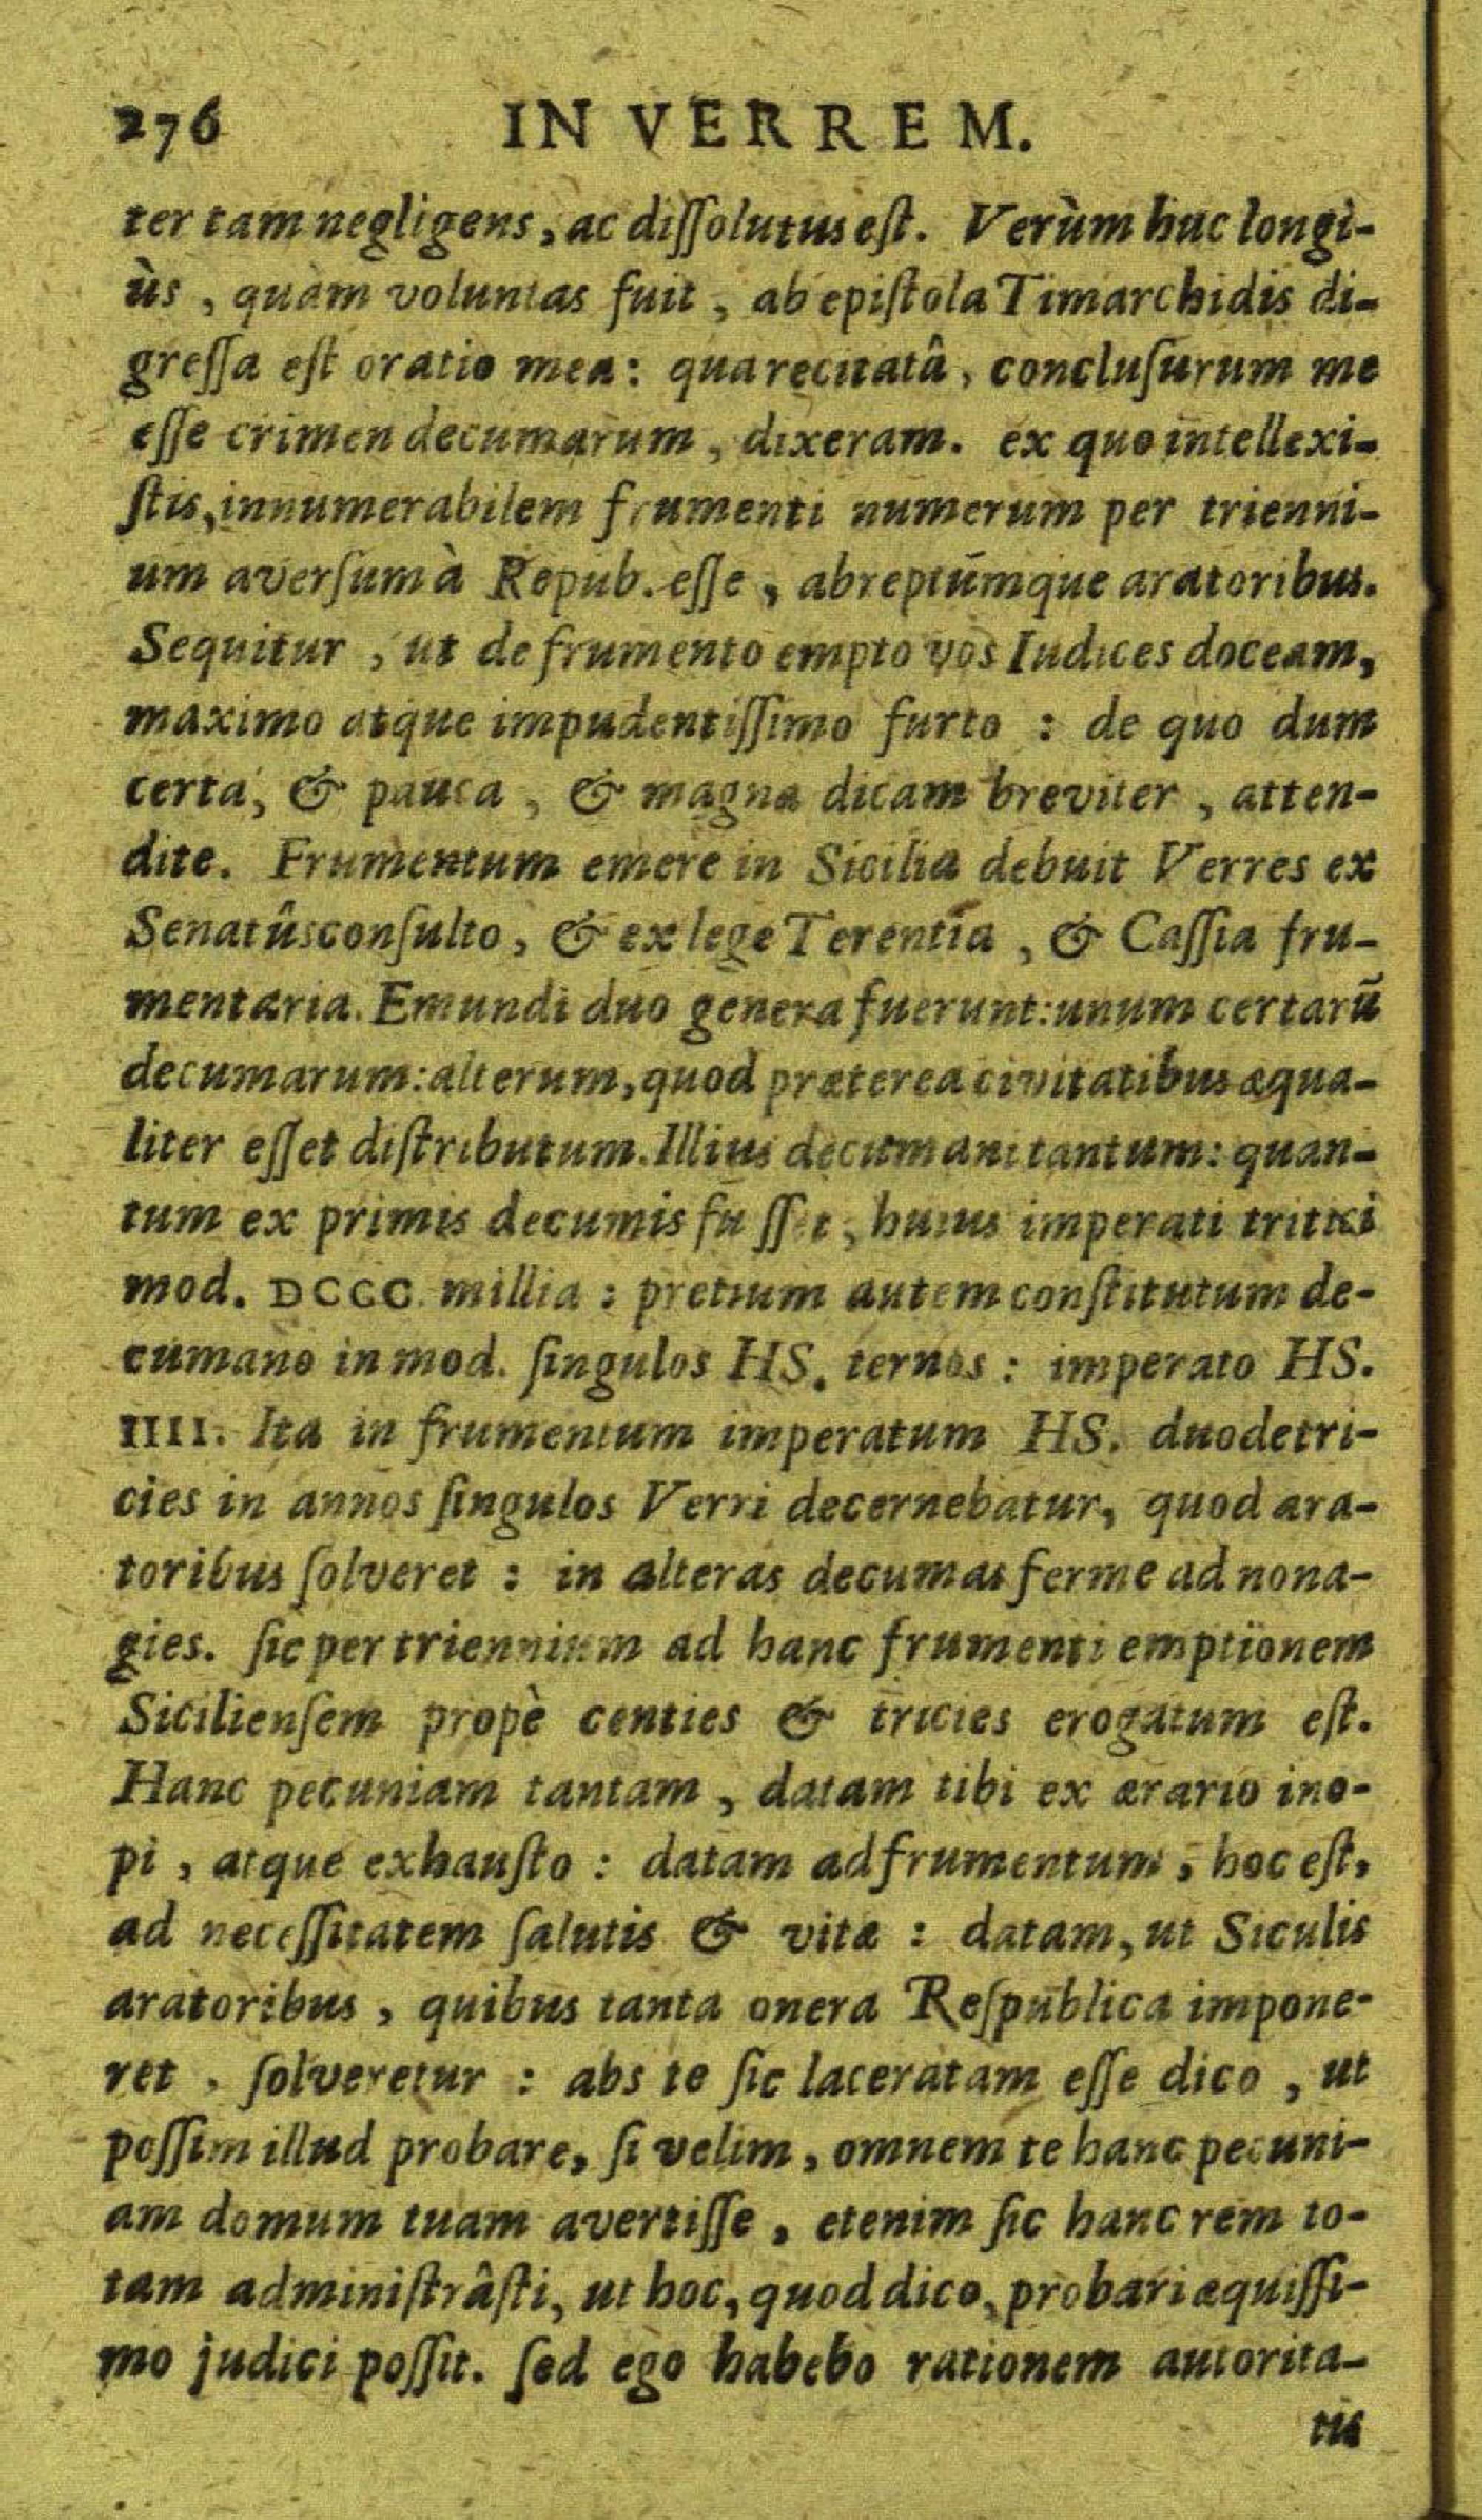 276 IN VERREM.
ter tam negligens, ac diſſolutus eſt. Verùm huc longi-
ùs, quàm voluntas fuit, ab epiſtola Timarchidis di-
greſſa eſt oratio mea: qua recitatâ, concluſurum me
eſſe crimen decumarum, dixeram. ex quo intellexi-
ſtis, innumerabilem frumenti numerum per trienni-
um averſum à Repub. eſſe, abreptúmque aratoribus.
Sequitur, ut de frumento empto vos Iudices doceam,
maximo atque impudentiſſimo furto: de quo dum
certa, & pauca, & magna dicam breviter, atten-
dite. Frumentum emere in Sicilia debuit Verres ex
Senatûsconſulto, & ex lege Terentia, & Caſſia fru-
mentaria. Emundi duo genera fuerunt: unum certarū
decumarum: alterum, quod præterea civitatibus æqua-
liter eſſet diſtributum. Illius decumani tantum: quan-
tum ex primis decumis fuiſſet, hujus imperati tritici
mod. DCCC. millia: pretium autem conſtitutum de-
cumano in mod. ſingulos HS. ternos: imperato HS.
IIII. Ita in frumentum imperatum HS. duodetri-
cies in annos ſingulos Verri decernebatur, quod ara-
toribus ſolveret: in alteras decumas ferme ad nona-
gies. ſic per triennium ad hanc frumenti emptionem
Sicilienſem propè centies & tricies erogatum eſt.
Hanc pecuniam tantam, datam tibi ex ærario ino-
pi, atque exhauſto: datam ad frumentum, hoc eſt,
ad neceſſitatem ſalutis & vitæ: datam, ut Siculis
aratoribus, quibus tanta onera Reſpublica impone-
ret, ſolveretur: abs te ſic laceratam eſſe dico, ut
poſſim illud probare, ſi velim, omnem te hanc pecuni-
am domum tuam avertiſſe, etenim ſic hanc rem to-
tam adminiſtrâſti, ut hoc, quod dico, probari æquiſſi-
mo judici poſſit. ſed ego habebo rationem autorita-
tis